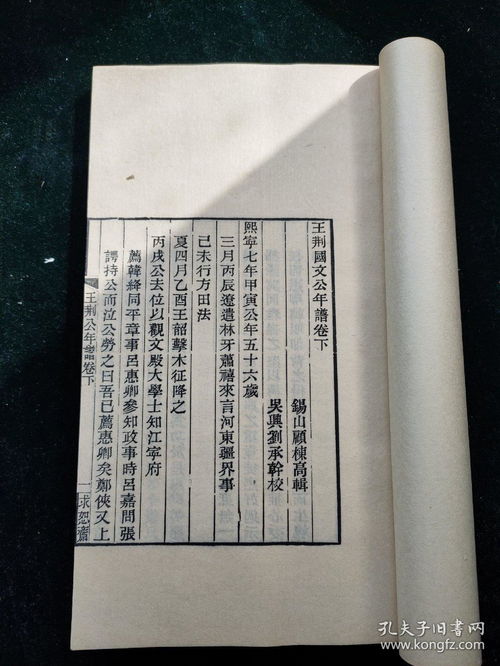 王荆國文公年譜卷下
錫山顧棟高輯
吳興劉承幹校
熙寧七年甲寅公年五十六歲
三月丙辰遼遣林牙蕭禧來言河東疆界事
己未行方田法
夏四月乙酉王韶擊木征降之
丙戌公去位以觀文殿大學士知江寧府
薦韓絳同平章事呂惠卿參知政事時呂嘉問張
諤持公而泣公勞之曰吾已薦惠卿矣鄭俠又上
王荆公年譜卷下
一
求恕齋
孔夫子旧书网
www.kongfz.com